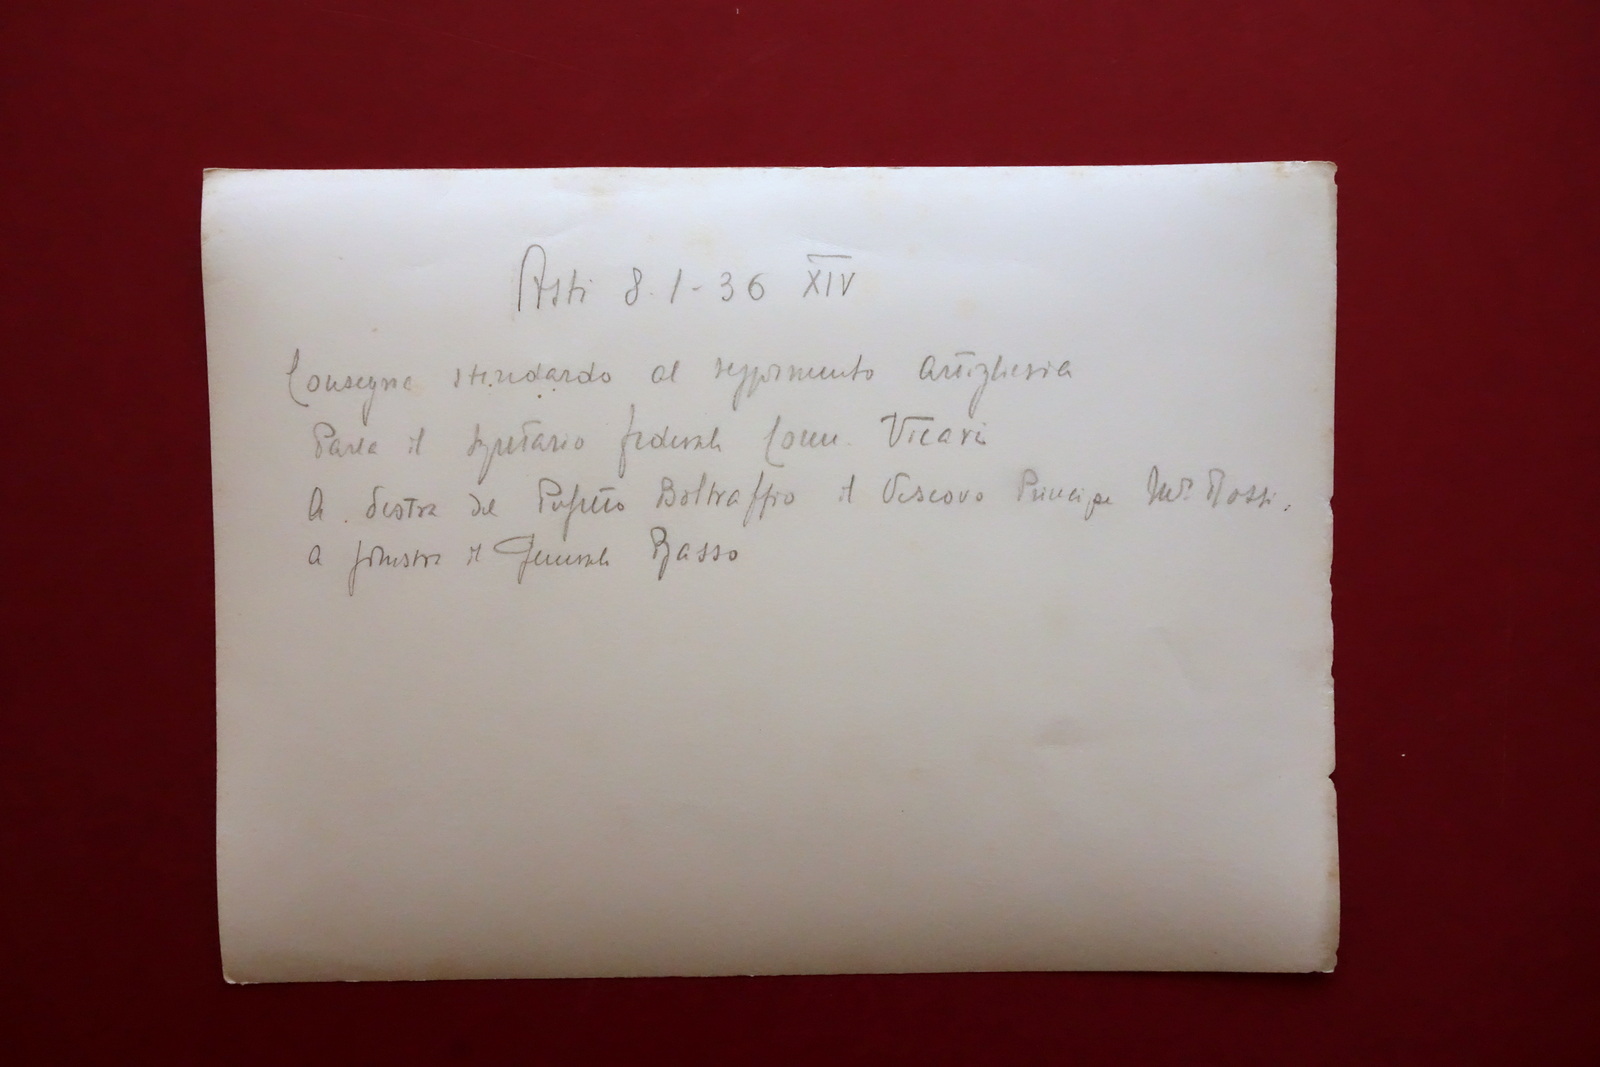 Asti 8-1-36 XIV
Consegna stendardo al reggimento artiglieria
Parla il segretario federale Comm. Vicari
A destra del Prefetto Boltraffio il Vescovo Principe Mr. Rossi,
a sinistra il Generale Basso